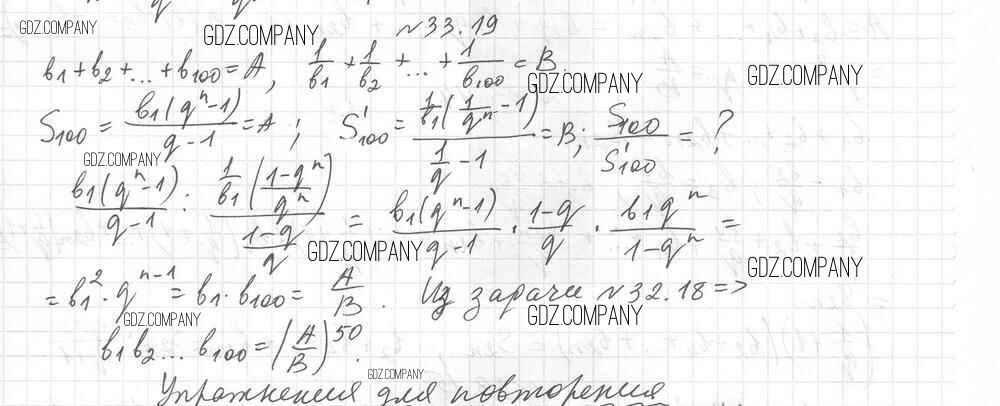 GDZ.COMPANY GDZ.COMPANY №33.19
b₁+b₂+...+b₁₀₀=A, 1/b₁ + 1/b₂ + ... + 1/b₁₀₀ = B.
GDZ.COMPANY GDZ.COMPANY
S₁₀₀ = b₁(qⁿ-1)/(q-1) = A; S'₁₀₀ = (1/b₁(1/qⁿ - 1))/(1/q - 1) = B; S₁₀₀/S'₁₀₀ = ?
GDZ.COMPANY
b₁(qⁿ-1)/(q-1) : (1/b₁((1-qⁿ)/qⁿ))/((1-q)/q) = b₁(qⁿ-1)/(q-1) · (1-q)/q · b₁qⁿ/(1-qⁿ) =
GDZ.COMPANY GDZ.COMPANY
= b₁²·qⁿ⁻¹ = b₁·b₁₀₀ = A/B. Из задачи №32.18 =>
GDZ.COMPANY GDZ.COMPANY
b₁b₂...b₁₀₀ = (A/B)⁵⁰.
GDZ.COMPANY
Упражнения для повторения